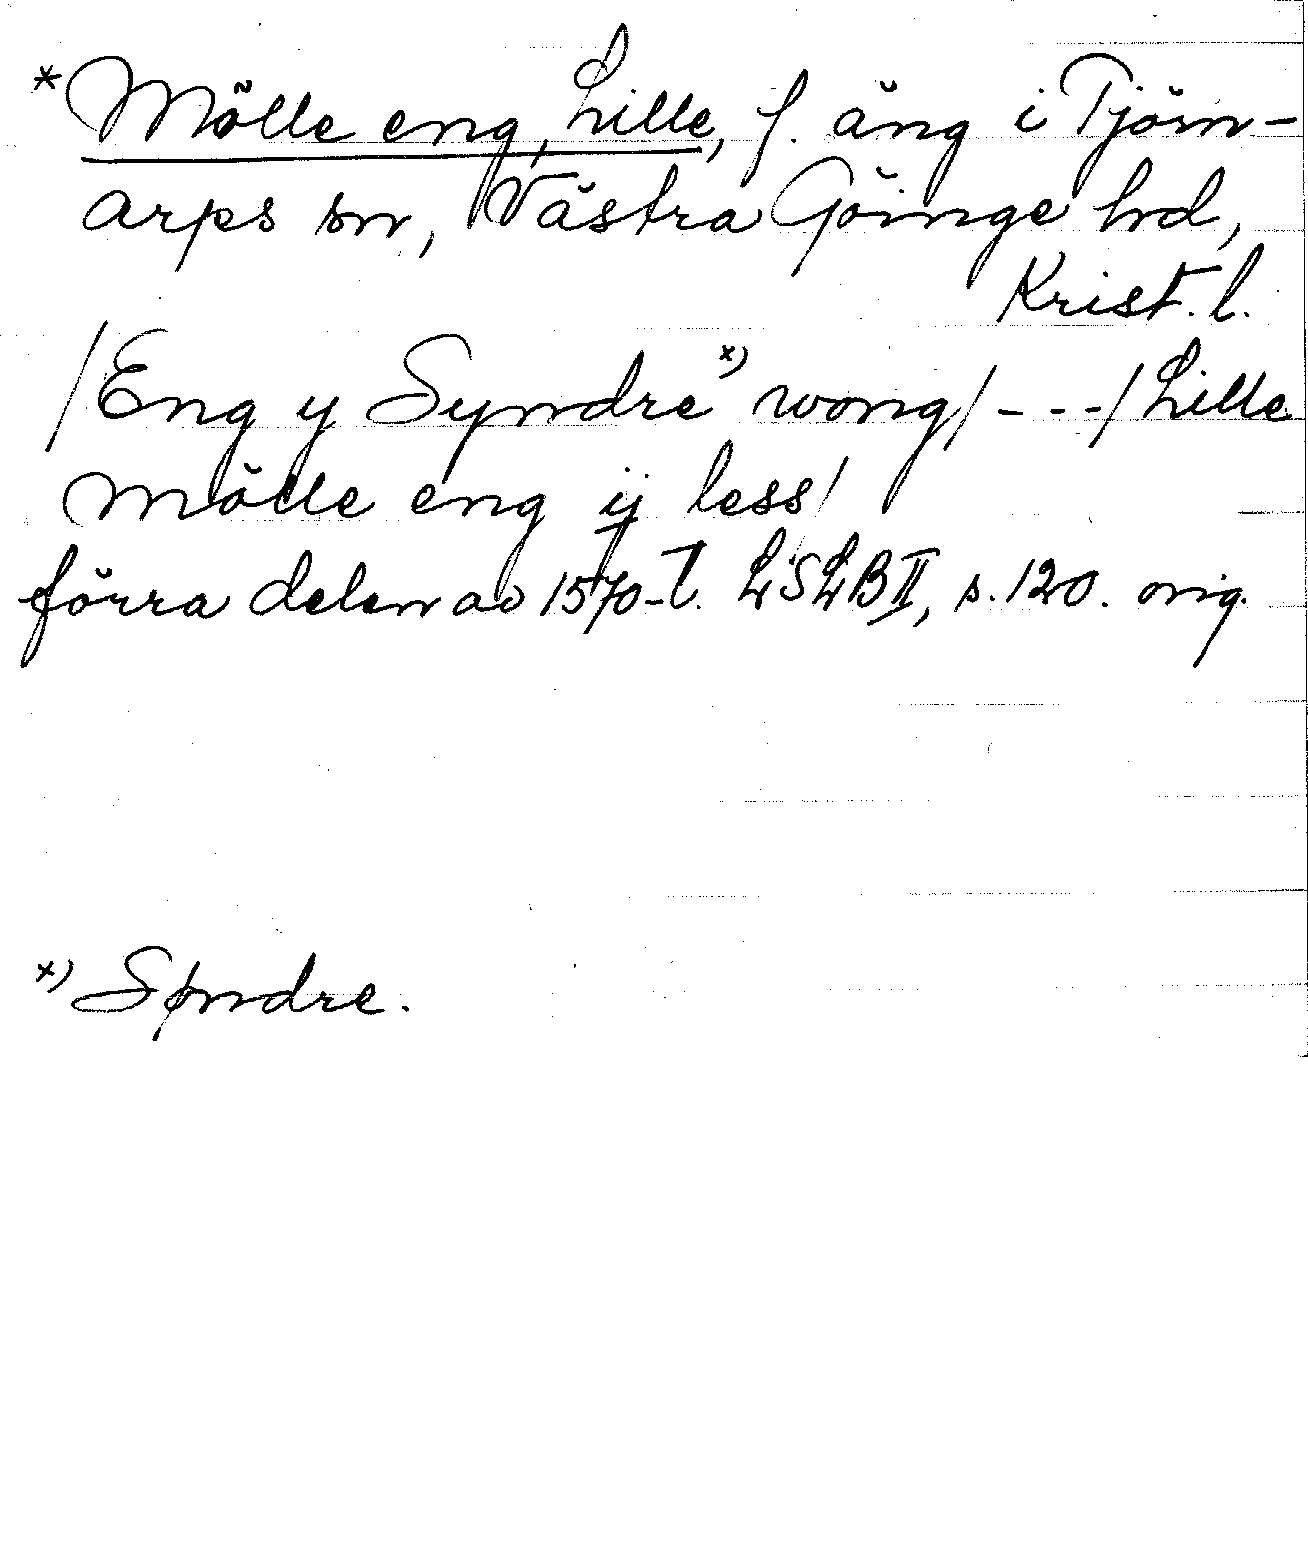 *Mölle eng, Lille, f. äng i Tjörn-
arps sn, Västra Göinge hd,
Krist. l.
/Eng y Syndre x) wong/ - - - / Lille
Mölle eng ij less/
förra delen av 1570-t. LSLB II, s. 120. orig.
x) Søndre.